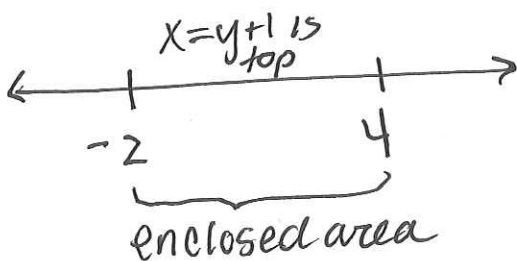 x=y+1 is
top
-2 4
enclosed area